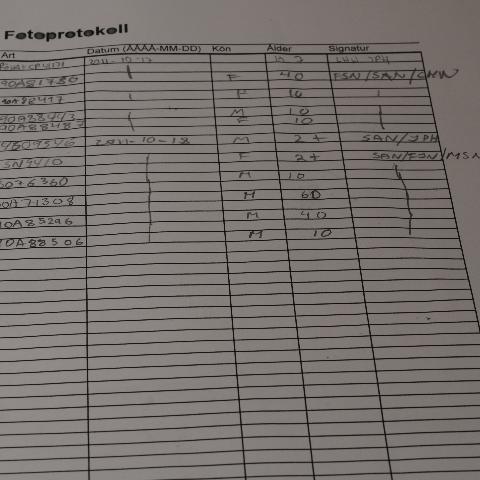 Fotoprotokoll
Art Datum (ÅÅÅÅ-MM-DD) Kön Ålder Signatur
2011-10-17
90A81786 F 40 FSN/SAN/CHW
90A88417 F 10
90A88443 M 10
90A88487 F 10
4BG09546 2011-10-18 M 2+ SAN/JPH
FSN9410 F 2+ SAN/FSN/MSN
6076360 M 10
90A71308 M 60
90A85296 M 40
90A88506 M 10